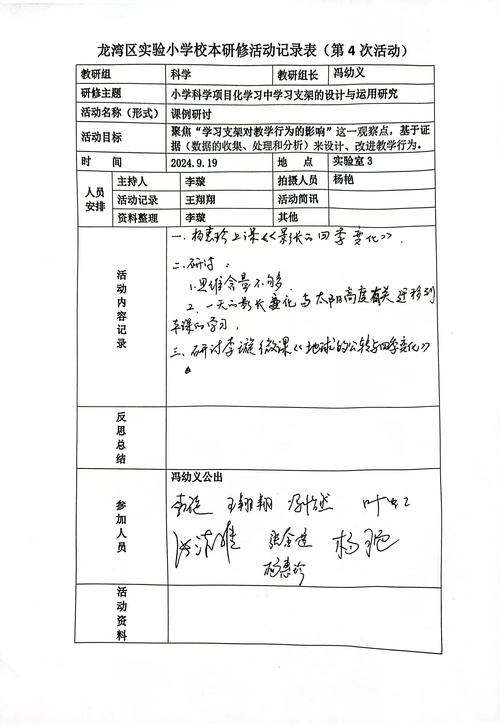 龙湾区实验小学校本研修活动记录表（第 4 次活动）
教研组 科学 教研组长 冯幼义
研修主题 小学科学项目化学习中学习支架的设计与运用研究
活动名称（形式） 课例研讨
活动目标 聚焦“学习支架对教学行为的影响”这一观察点，基于证
据（数据的收集、处理和分析）来设计、改进教学行为。
时 间 2024.9.19 地 点 实验室 3
人员安排 主持人 李璇 拍摄人员 杨艳
活动记录 王翔翔 活动简讯
资料整理 李璇 其他
活动内容记录
一、杨惠珍上课《影长的四季变化》.
二、研讨：
1.思维含量不够
2、一天的影长变化与太阳高度有关迁移到
本课的学习.
三、研讨李璇微课《地球的公转与四季变化》
反思总结
参加人员
冯幼义公出
李璇 王翔翔 叶
杨艳
杨惠珍
活动资料